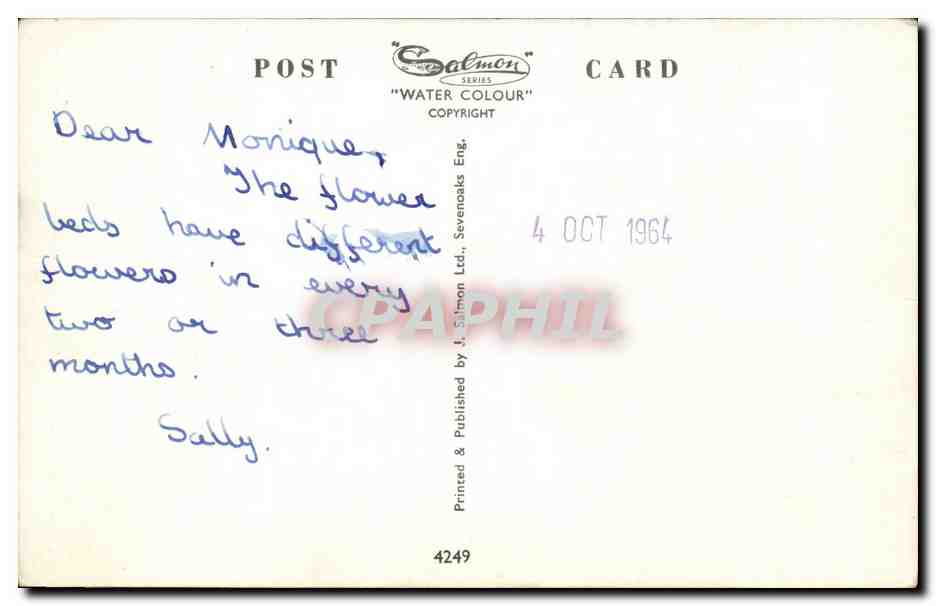 POST CARD
"Salmon"
SERIES
"WATER COLOUR"
COPYRIGHT
Dear Monique,
The flower
beds have different
flowers in every
two or three
months.
Sally.
Printed & Published by J. Salmon Ltd., Sevenoaks Eng.
4 OCT 1964
CPAPHIL
4249